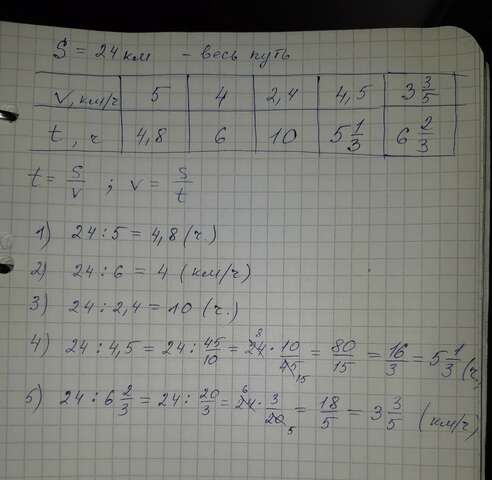 S = 24 км - весь путь
v, км/ч 5 4 2,4 4,5 3 3/5
t, ч 4,8 6 10 5 1/3 6 2/3
t = S/v ; v = S/t
1) 24 : 5 = 4,8 (ч.)
2) 24 : 6 = 4 (км/ч)
3) 24 : 2,4 = 10 (ч.)
4) 24 : 4,5 = 24 : 45/10 = 24 8 · 10/45 15 = 80/15 = 16/3 = 5 1/3 (ч
5) 24 : 6 2/3 = 24 : 20/3 = 24 6 · 3/20 5 = 18/5 = 3 3/5 (км/ч)